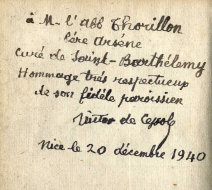 à M. l'abb Thorillon
Père Arsène
Curé de Saint-Barthélemy
Hommage très respectueux
de son fidèle paroissien
Victor de Cessole
Nice le 20 décembre 1940